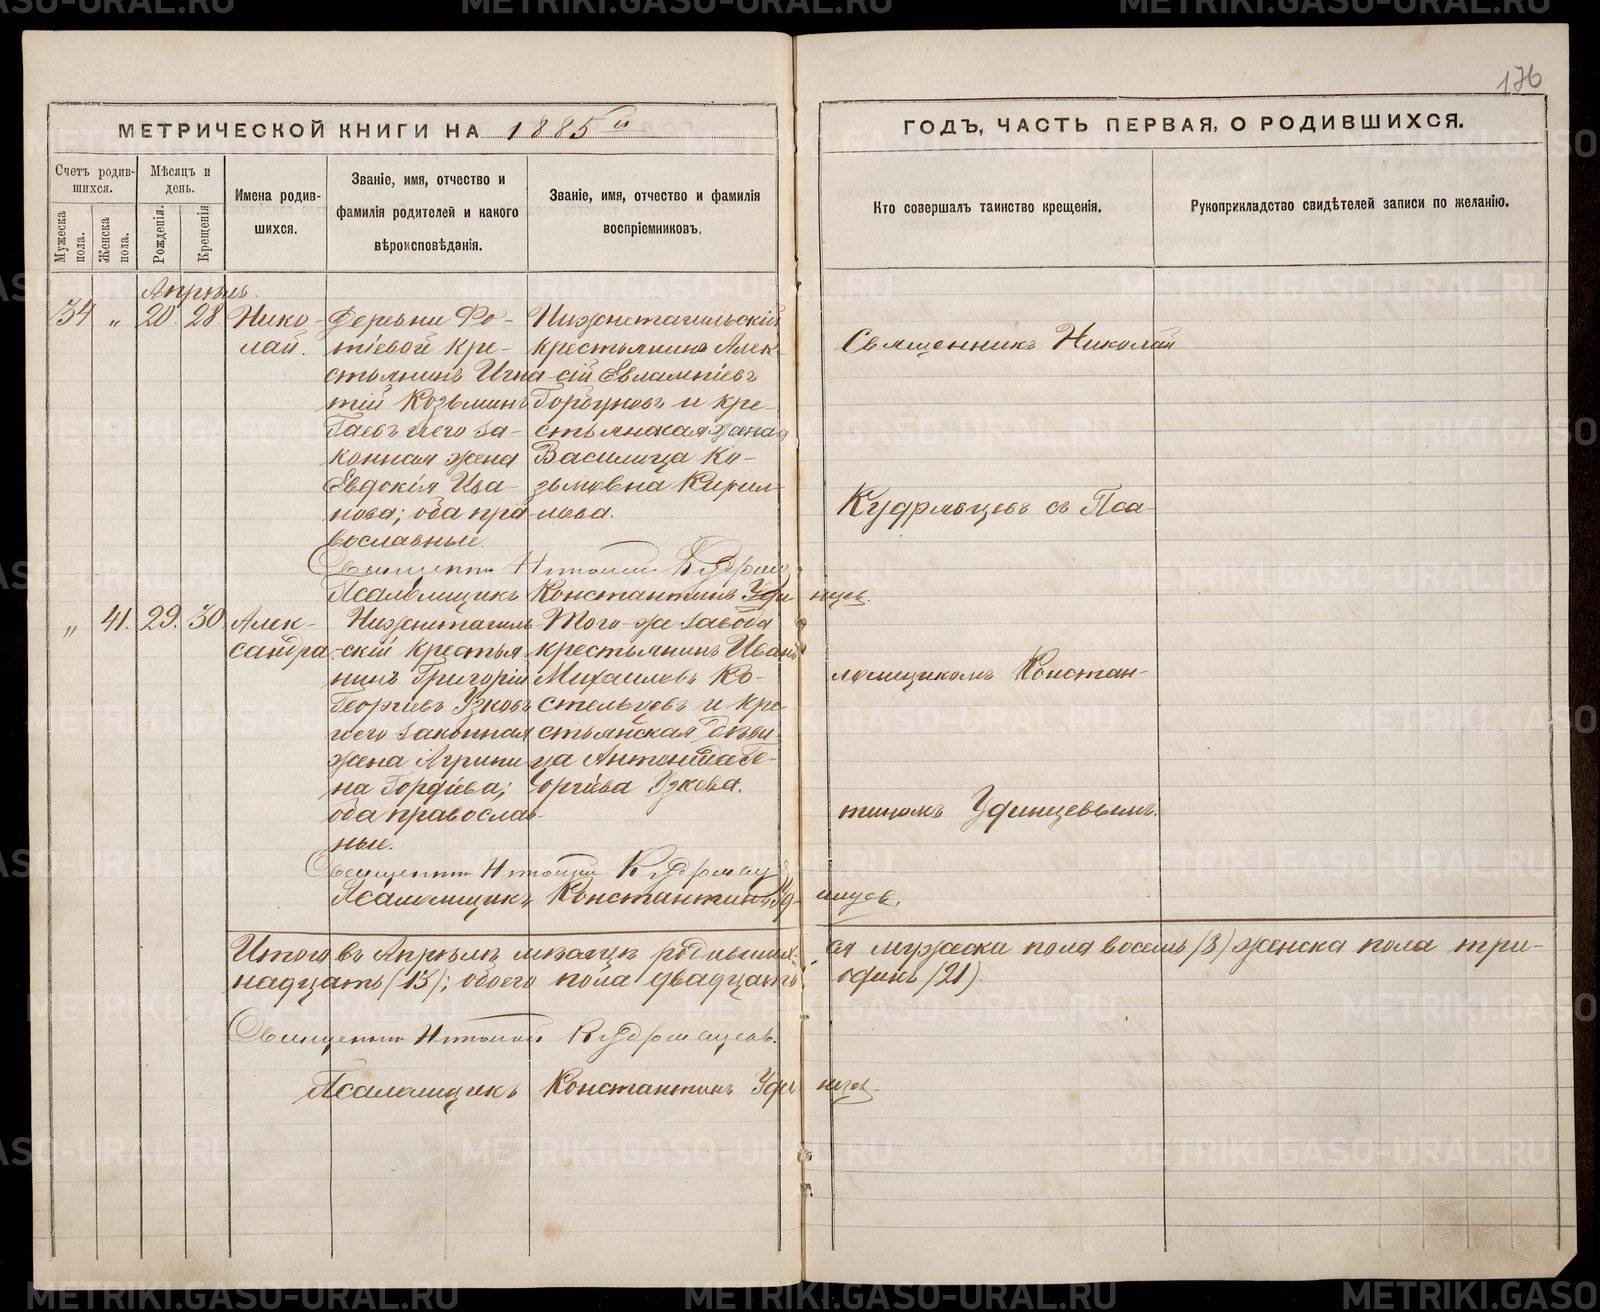 176
МЕТРИЧЕСКОЙ КНИГИ НА 1885й
ГОДЪ, ЧАСТЬ ПЕРВАЯ, О РОДИВШИХСЯ.
Счетъ родив-
шихся.
Мужеска
пола.
Женска
пола.
Мѣсяцъ и
день.
Рожденія.
Крещенія
Имена родив-
шихся.
Званіе, имя, отчество и
фамилія родителей и какого
вѣроисповѣданія.
Званіе, имя, отчество и фамилія
воспріемниковъ.
Кто совершалъ таинство крещенія.
Рукоприкладство свидѣтелей записи по желанію.
Апрѣль.
34 „ 20. 28.
Нико-
лай.
Деревни Фо-
тіевой кре-
стьянинъ Игна-
тій Козьминъ
и его за-
конная жена
Евдокія Ива-
нова; оба пра-
вославные.
Нижнетагильскій
крестьянинъ Алек-
сій Евлампіевъ
Горбуновъ и кре-
стьянская жена
Василиса Ко-
зьмовна Кирил-
лова.
Священникъ Николай Кудрявц
Псаломщикъ Константинъ Удинцев.
„ 41. 29. 30.
Алек-
сандра
Нижнетагиль-
скій крестья-
нинъ Григорій
Георгіевъ Узковъ
и его законная
жена Агрипи-
на Гордѣева;
оба православ-
ные.
Того же завода
крестьянинъ Иванъ
Михаиловъ Ко-
стельцевъ и кре-
стьянская дѣви-
ца Антонида Ге-
оргіева Узкова.
Священникъ Николай Кудрявц
Псаломщикъ Константинъ Удинцев.
Священникъ Николай
Кудрявцевъ съ Пса-
ломщикомъ Констан-
тиномъ Удинцевымъ.
Итого въ Апрѣлѣ мѣсяцѣ родивших-ся мужеска пола восемь (8) женска пола три-
надцать (13); обоего пола двадцать одинъ (21).
Священникъ Николай Кудрявцевъ.
Псаломщикъ Константинъ Удинцев.
METRIKI.GASO-URAL.RU